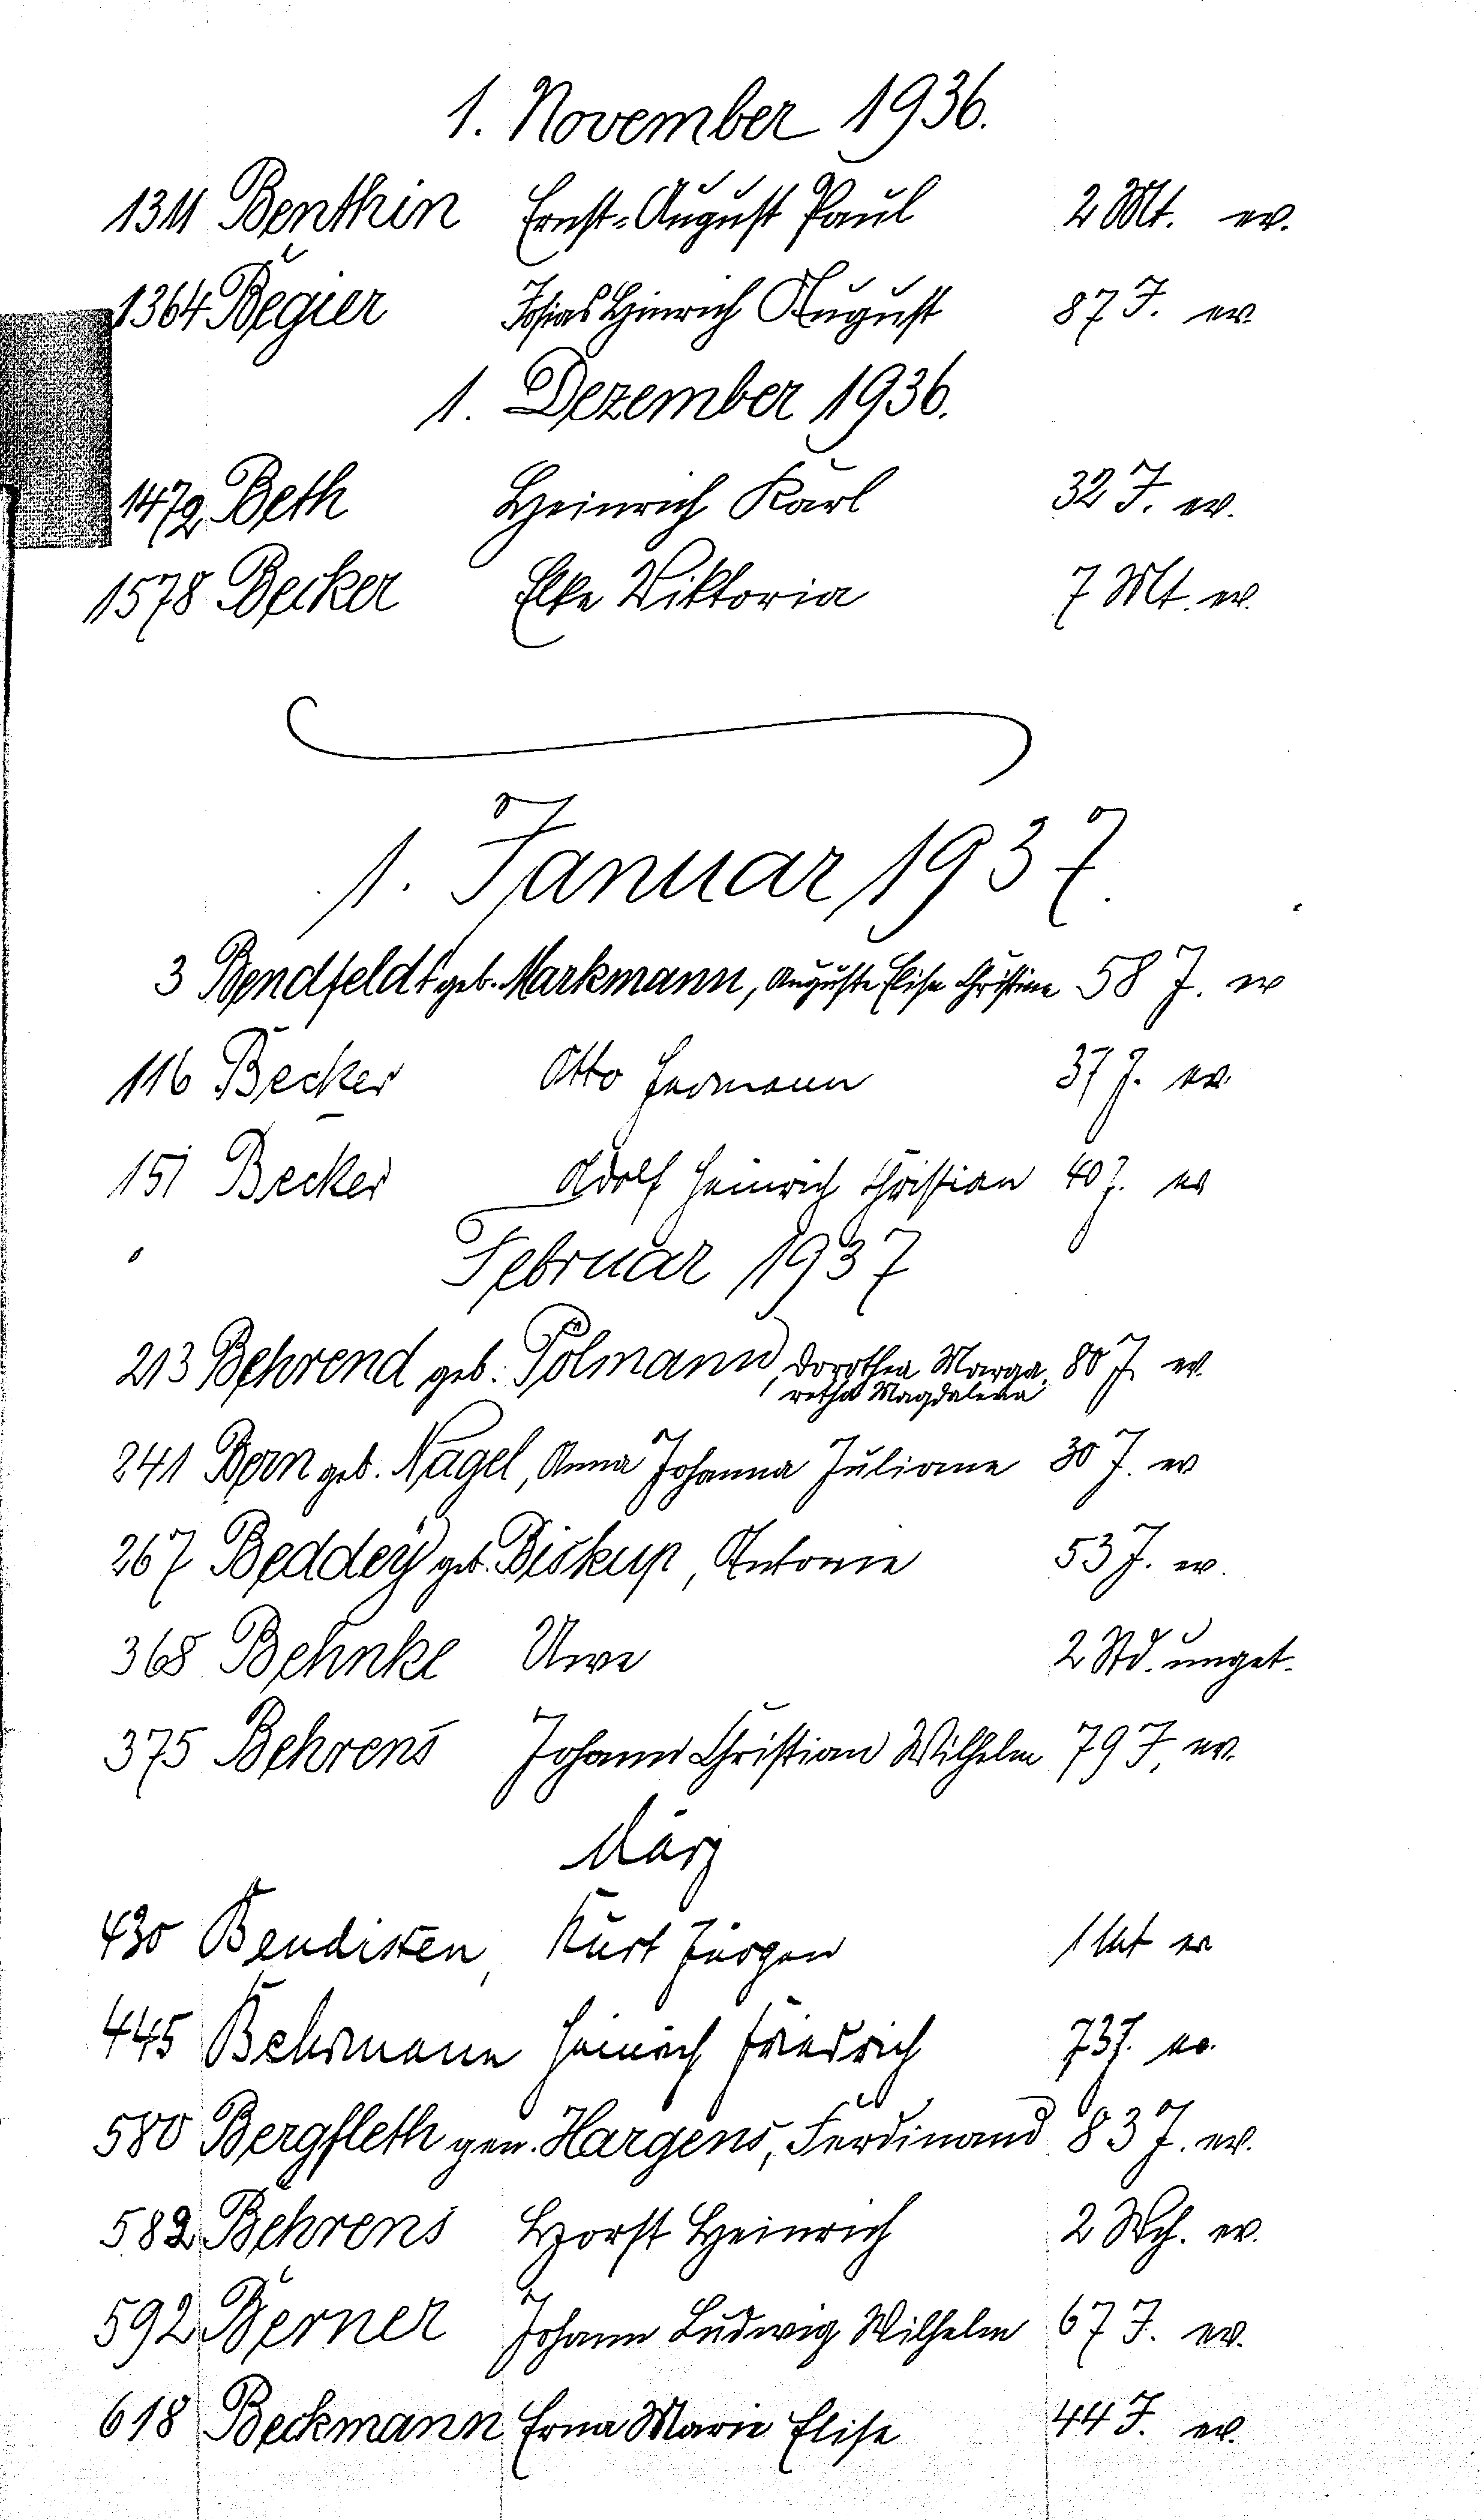 1. November 1936.
1311 Benthin Ernst-August Paul 2 Mt. ev.
1364 Begier Josias Hinrich August 87 J. ev.
1. Dezember 1936.
1472 Beth Heinrich Karl 32 J. ev.
1578 Becker Elke Viktoria 7 Mt. ev.
1. Januar 1937.
3 Bendfeldt geb. Markmann, Auguste Elise Christine 58 J. ev
116 Becker Otto Hermann 37 J. ev.
151 Becker Adolf Heinrich Christian 40 J. ev
Februar 1937
213 Behrend geb. Pölmann, Dorothea Marga- 80 J. ev.
retha Magdalena
241 Bern geb. Nagel, Anna Johanna Juliane 30 J. ev
267 Beddey geb. Biskup, Antonie 53 J. ev.
368 Behnke Uwe 2 Std. unget.
375 Behrens Johann Christian Wilhelm 79 J. ev.
März
430 Bendixen, Kurt Jürgen 1 Mt ev
445 Behrmann Heinrich Friedrich 73 J. ev.
580 Bergfleth gen. Hargens, Ferdinand 83 J. ev.
582 Behrens Horst Heinrich 2 Wch. ev.
592 Berner Johann Ludwig Wilhelm 67 J. ev.
618 Beckmann Erna Marie Elise 44 J. ev.